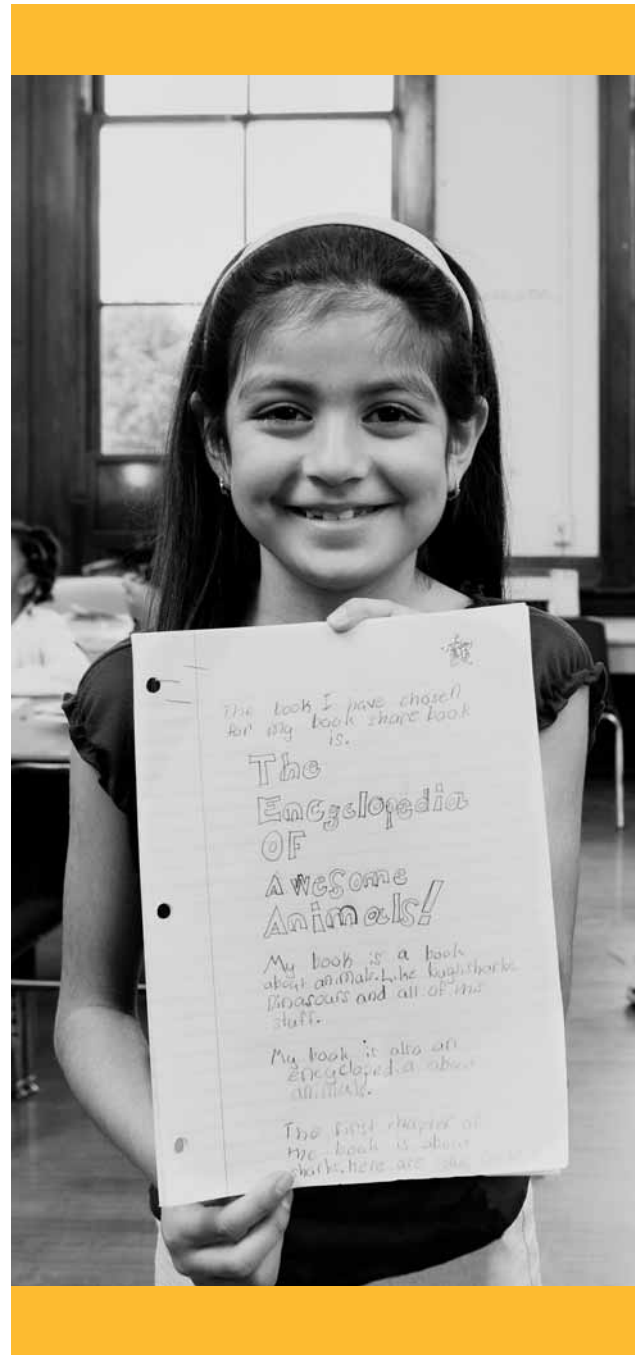 The book I have chosen
for my book share book
is.
The
Encyclopedia
OF
Awesome
Animals!
My book is a book
about animals. Like bugs, sharks
Dinasours and all of this
stuff.
My book is also an
encyclopedia about
animals.
The first chapter of
the book is about
sharks. here are